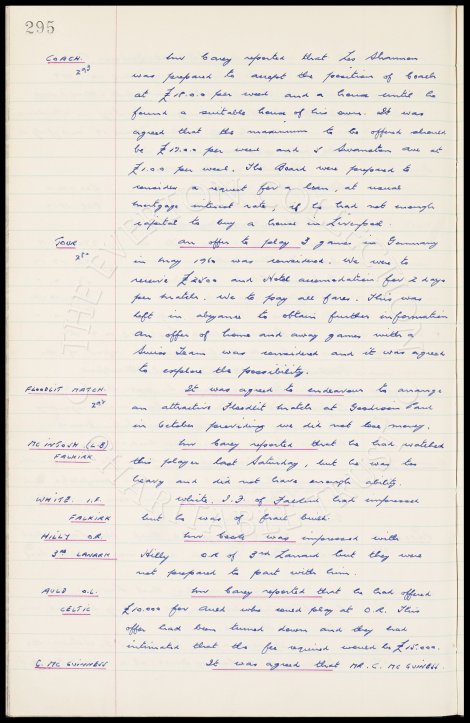 295
COACH.
2nd
Mr Carey reported that Les Shannon
was prepared to accept the position of Coach
at £18.0.0 per week and a house until he
found a suitable house of his own. It was
agreed that the maximum to be offered should
be £17.0.0 per week and 2 Swanston Ave at
£1.0.0 per week. The Board were prepared to
consider a request for a loan, at usual
mortgage interest rate, if he had not enough
capital to buy a house in Liverpool.
TOUR
An offer to play 3 games in Germany
in May 1960 was considered. We were to
receive £2500 and Hotel accomodation for 2 days
per match. We to pay all fares. This was
left in abyance to obtain further information
An offer of home and away games with a
Swiss Team was considered and it was agreed
to explore the possibility.
FLOODLIT MATCH.
It was agreed to endeavour to arrange
an attractive Floodlit match at Goodison Park
in October providing we did not lose money.
MCINTOSH (L.B)
FALKIRK
Mr Carey reported that he had watched
this player last Saturday, but he was too
heavy and did not have enough ability.
WHITE. I.F.
FALKIRK
White. I.F of Falkirk had impressed
but he was of frail build
HILLY O.R.
3RD LANARK
Mr Cooke was impressed with
Hilly O.R of 3rd Lanard but they were
not prepared to part with him.
AULD O.L.
CELTIC
Mr Carey reported that he had offered
£10.000 for Auld who could play at O.R. This
offer had been turned down and they had
intimated that the fee required would be £15.000.
C. MC GUINNESS
It was agreed that MR. C. MC GUINESS.